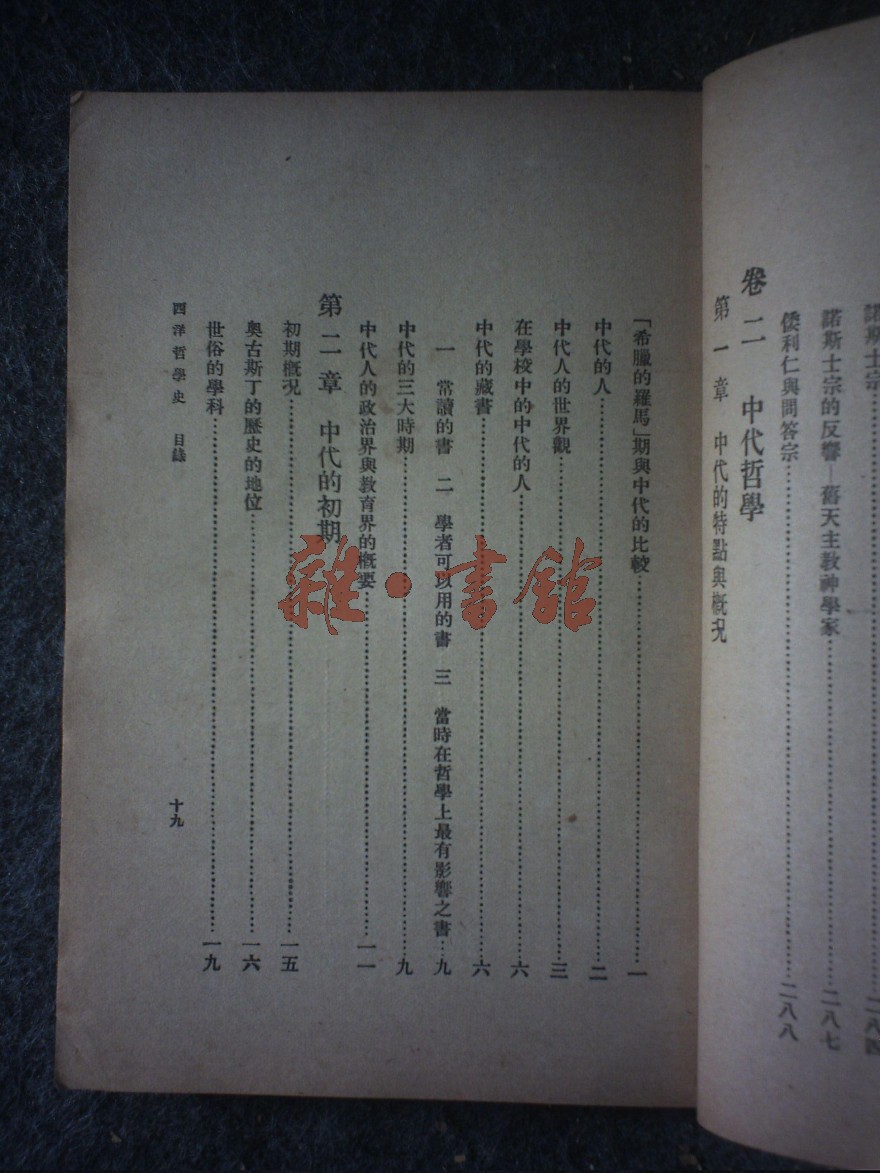 諾斯士宗……二八四
諾斯士宗的反響—舊天主教神學家……二八七
倭利仁與問答宗……二八八
卷二 中代哲學
第一章 中代的特點與概況
「希臘的羅馬」期與中代的比較……一
中代的人……二
中代人的世界觀……三
在學校中的中代的人……六
中代的藏書……六
一 常讀的書 二 學者可以用的書 三 當時在哲學上最有影響之書……九
中代的三大時期……九
中代人的政治界與教育界的概要……一一
第二章 中代的初期
初期概況……一五
奧古斯丁的歷史的地位……一六
世俗的學科……一九
西洋哲學史 目錄 十九
雜·書館